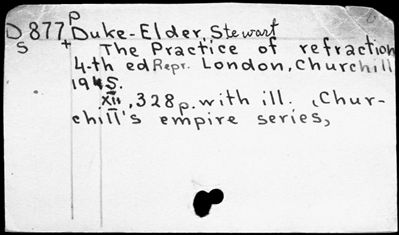 P
D 877 Duke-Elder, Stewart
S + The Practice of refraction
4-th ed Repr. London, Churchill
1945.
XII, 328 p. with ill. (Chur-
chill's empire series,